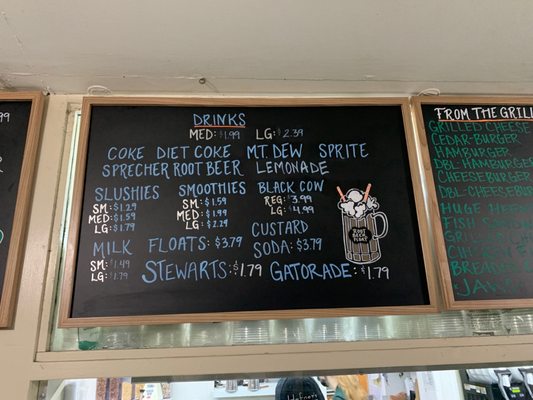 DRINKS
MED: $1.99 LG: $2.39
COKE DIET COKE MT. DEW SPRITE
SPRECHER ROOT BEER LEMONADE
SLUSHIES
SM: $1.29
MED: $1.59
LG: $1.79
SMOOTHIES
SM: $1.59
MED: $1.99
LG: $2.29
BLACK COW
REG: $3.99
LG: $4.99
MILK
SM: $1.49
LG: $1.79
FLOATS: $3.79
CUSTARD
SODA: $3.79
STEWARTS: $1.79 GATORADE: $1.79
ROOT
BEER
FLOAT
FROM THE GRILL
GRILLED CHEESE
CEDAR-BURGER
HAMBURGER
DBL-HAMBURGER
CHEESEBURGER
DBL-CHEESEBUR
HUGE
FISH
GRILL
CHICKEN